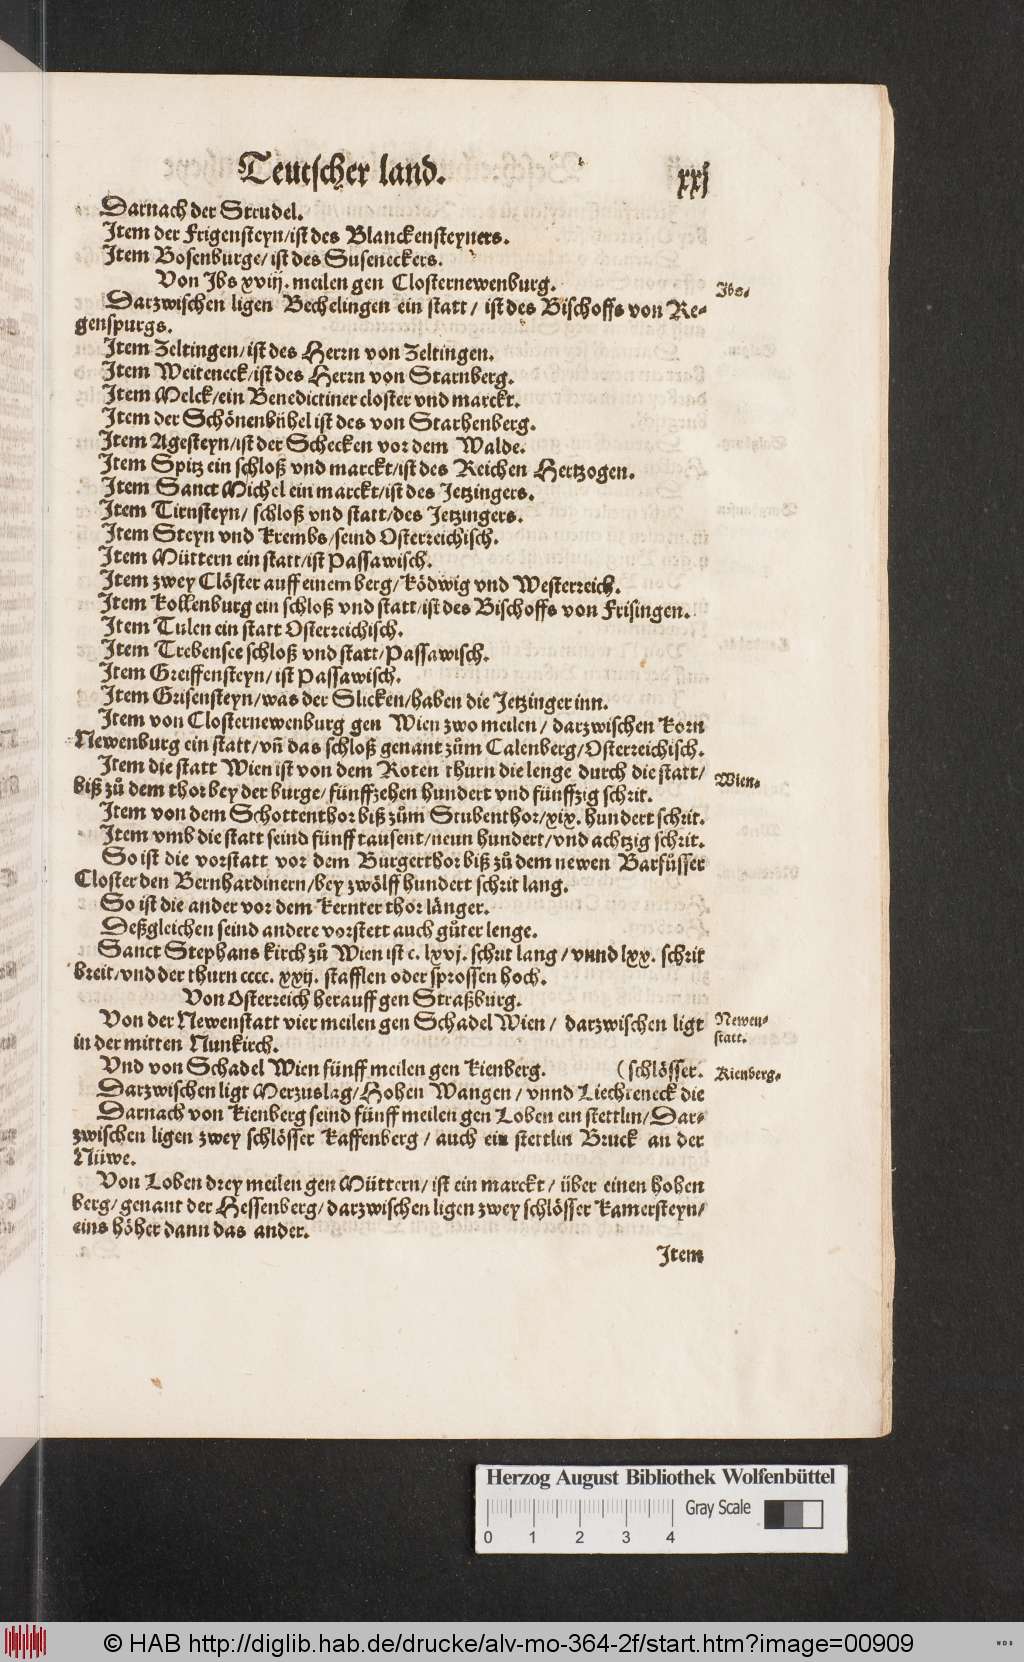 Teutscher land. xxj
Darnach der Strudel.
Item der Frigensteyn/ist des Blanckensteyners.
Item Bosenburge/ist des Suseneckers.
Von Jbs xviij. meilen gen Closternewenburg.
Jbs.
Darzwischen ligen Bechelingen ein statt/ ist des Bischoffs von Re-
genspurgs.
Item Zeltingen/ist des Herrn von Zeltingen.
Item Weiteneck/ist des Herrn von Starnberg.
Item Melck/ein Benedictiner closter vnd marckt.
Item der Schönenbühel ist des von Starhenberg.
Item Agesteyn/ist der Schecken vor dem Walde.
Item Spitz ein schloß vnd marckt/ist des Reichen Hertzogen.
Item Sanct Michel ein marckt/ist des Jetzingers.
Item Tirnsteyn/ schloß vnd statt/des Jetzingers.
Item Steyn vnd Krembs/seind Osterreichisch.
Item Müttern ein statt/ist Passawisch.
Item zwey Clöster auff einem berg/Ködwig vnd Westerreich.
Item Kollenburg ein schloß vnd statt/ist des Bischoffs von Frisingen.
Item Tulen ein statt Osterreichisch.
Item Trebensee schloß vnd statt/Passawisch.
Item Greiffensteyn/ist Passawisch.
Item Grisensteyn/was der Slicken/haben die Jetzinger inn.
Item von Closternewenburg gen Wien zwo meilen/ darzwischen Korn
Newenburg ein statt/vn̄ das schloß genant zům Calenberg/Osterreichisch.
Item die statt Wien ist von dem Roten thurn die lenge durch die statt/
Wien.
biß zů dem thor bey der burge/fünffzehen hundert vnd fünffzig schrit.
Item von dem Schottenthor biß zům Stubenthor/xix. hundert schrit.
Item vmb die statt seind fünff tausent/neun hundert/vnd achtzig schrit.
So ist die vorstatt vor dem Burgerthor biß zů dem newen Barfüsser
Closter den Bernhardinern/bey zwölff hundert schrit lang.
So ist die ander vor dem Kernter thor länger.
Deßgleichen seind andere vorstett auch gůter lenge.
Sanct Stephans kirch zů Wien ist c. lxvj. schrit lang/vnnd lxx. schrit
breit/vnd der thurn cccc. xxij. stafflen oder sprossen hoch.
Von Osterreich herauff gen Straßburg.
Von der Newenstatt vier meilen gen Schadel Wien/ darzwischen ligt
Newen-
statt.
in der mitten Nunkirch.
Vnd von Schadel Wien fünff meilen gen Kienberg. (schlösser.
Kienberg.
Darzwischen ligt Merzuslag/Hohen Wangen/vnnd Liechteneck die
Darnach von Kienberg seind fünff meilen gen Loben ein stettlin/Dar-
zwischen ligen zwey schlösser Kaffenberg/ auch ein stettlin Bruck an der
Nüwe.
Von Loben drey meilen gen Müttern/ ist ein marckt/ über einen hohen
berg/genant der Hessenberg/darzwischen ligen zwey schlösser Kamersteyn/
eins höher dann das ander.
Item
Herzog August Bibliothek Wolfenbüttel
Gray Scale
0 1 2 3 4
© HAB http://diglib.hab.de/drucke/alv-mo-364-2f/start.htm?image=00909